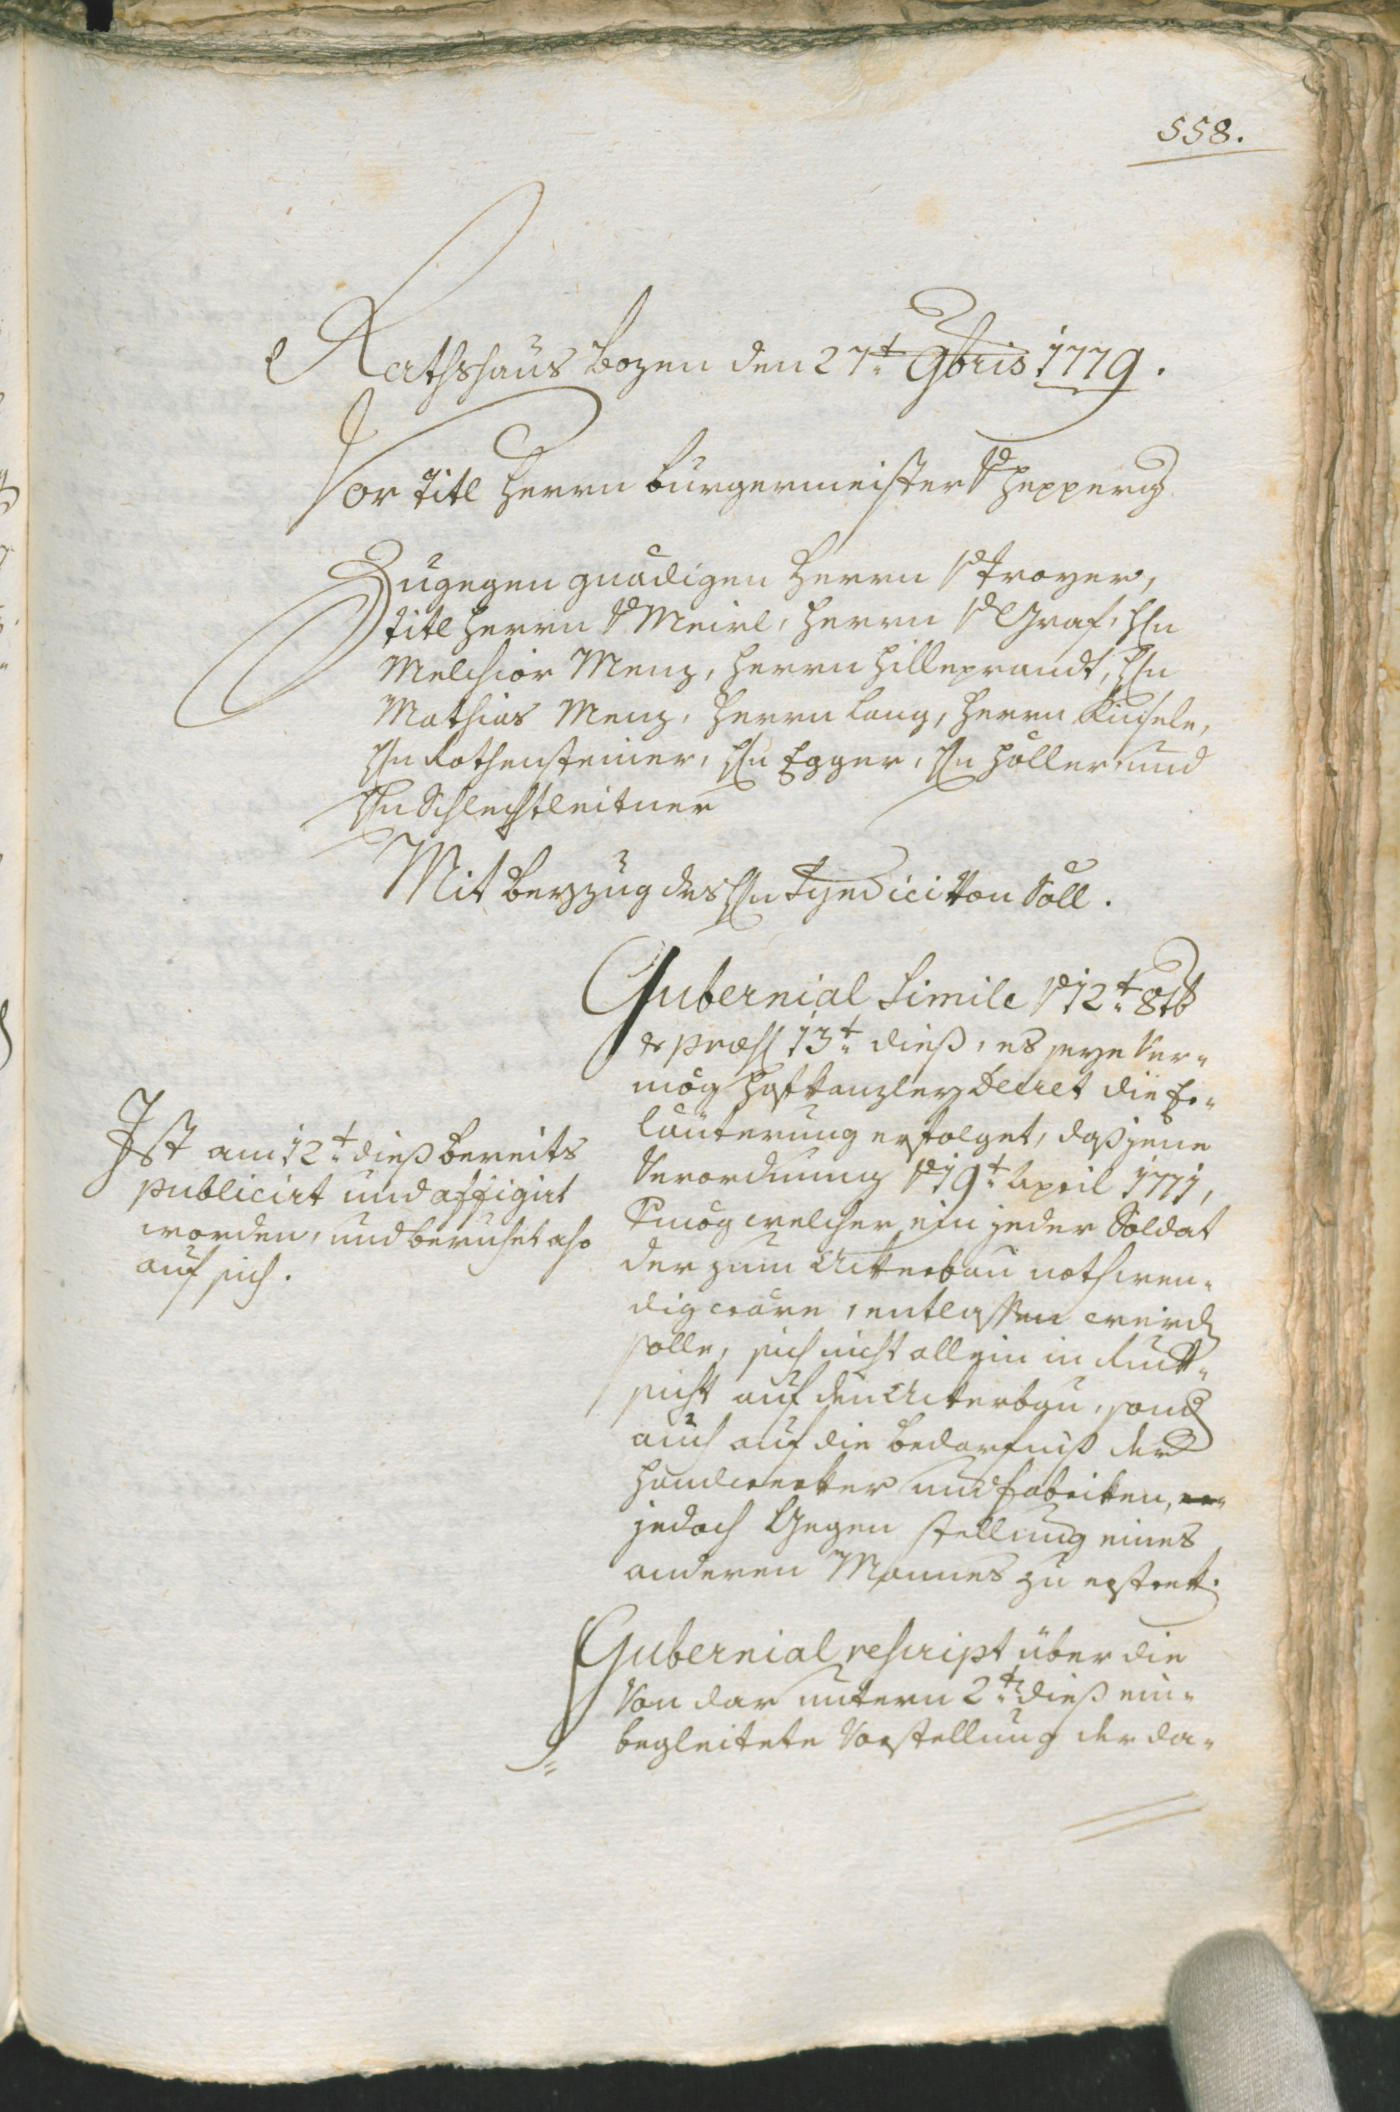 558.
Rathshaus Bozen den 27t. 9bris 1779.
Vor Titl Herrn Burgermeister v Hepperg
Zugegen gnädigen Herrn v Troyer,
Titl Herrn v Meirl, Herrn v Graf, Hn
Melchior Menz, Herrn Hilleprandt, Hn
Mathias Menz, Herrn Lang, Herrn Kinsele,
Hn Rothensteiner, Hn Egger, Hn Höller, und
Hn Schlechtleitner
Mit Beyzug des Hn Syndici von Söll.
Gubernial Simile v 12t. 8tb
et præs 13t. dieß, es seye ver-
mög Hofkanzley Decret die Er-
läuterung erfolget, daß jene
Verordnung v 19t. April 1771,
vermög welcher ein jeder Soldat
der zum Ackerbau nothwen-
dig wäre, entlassen werden
solle, sich nicht allein in Ruck-
sicht auf den Ackerbau, sond
auch auf die Bedarfniß der
Handwerker und Fabriken,
jedoch Gegen stellung eines
anderen Mannes zu erstrek.
Ist am 12t. dieß bereits
publicirt und affigirt
worden, und beruhet also
auf sich.
Gubernial rescript über die
von dar untern 2t. dieß ein-
begleitete Vorstellung der da-